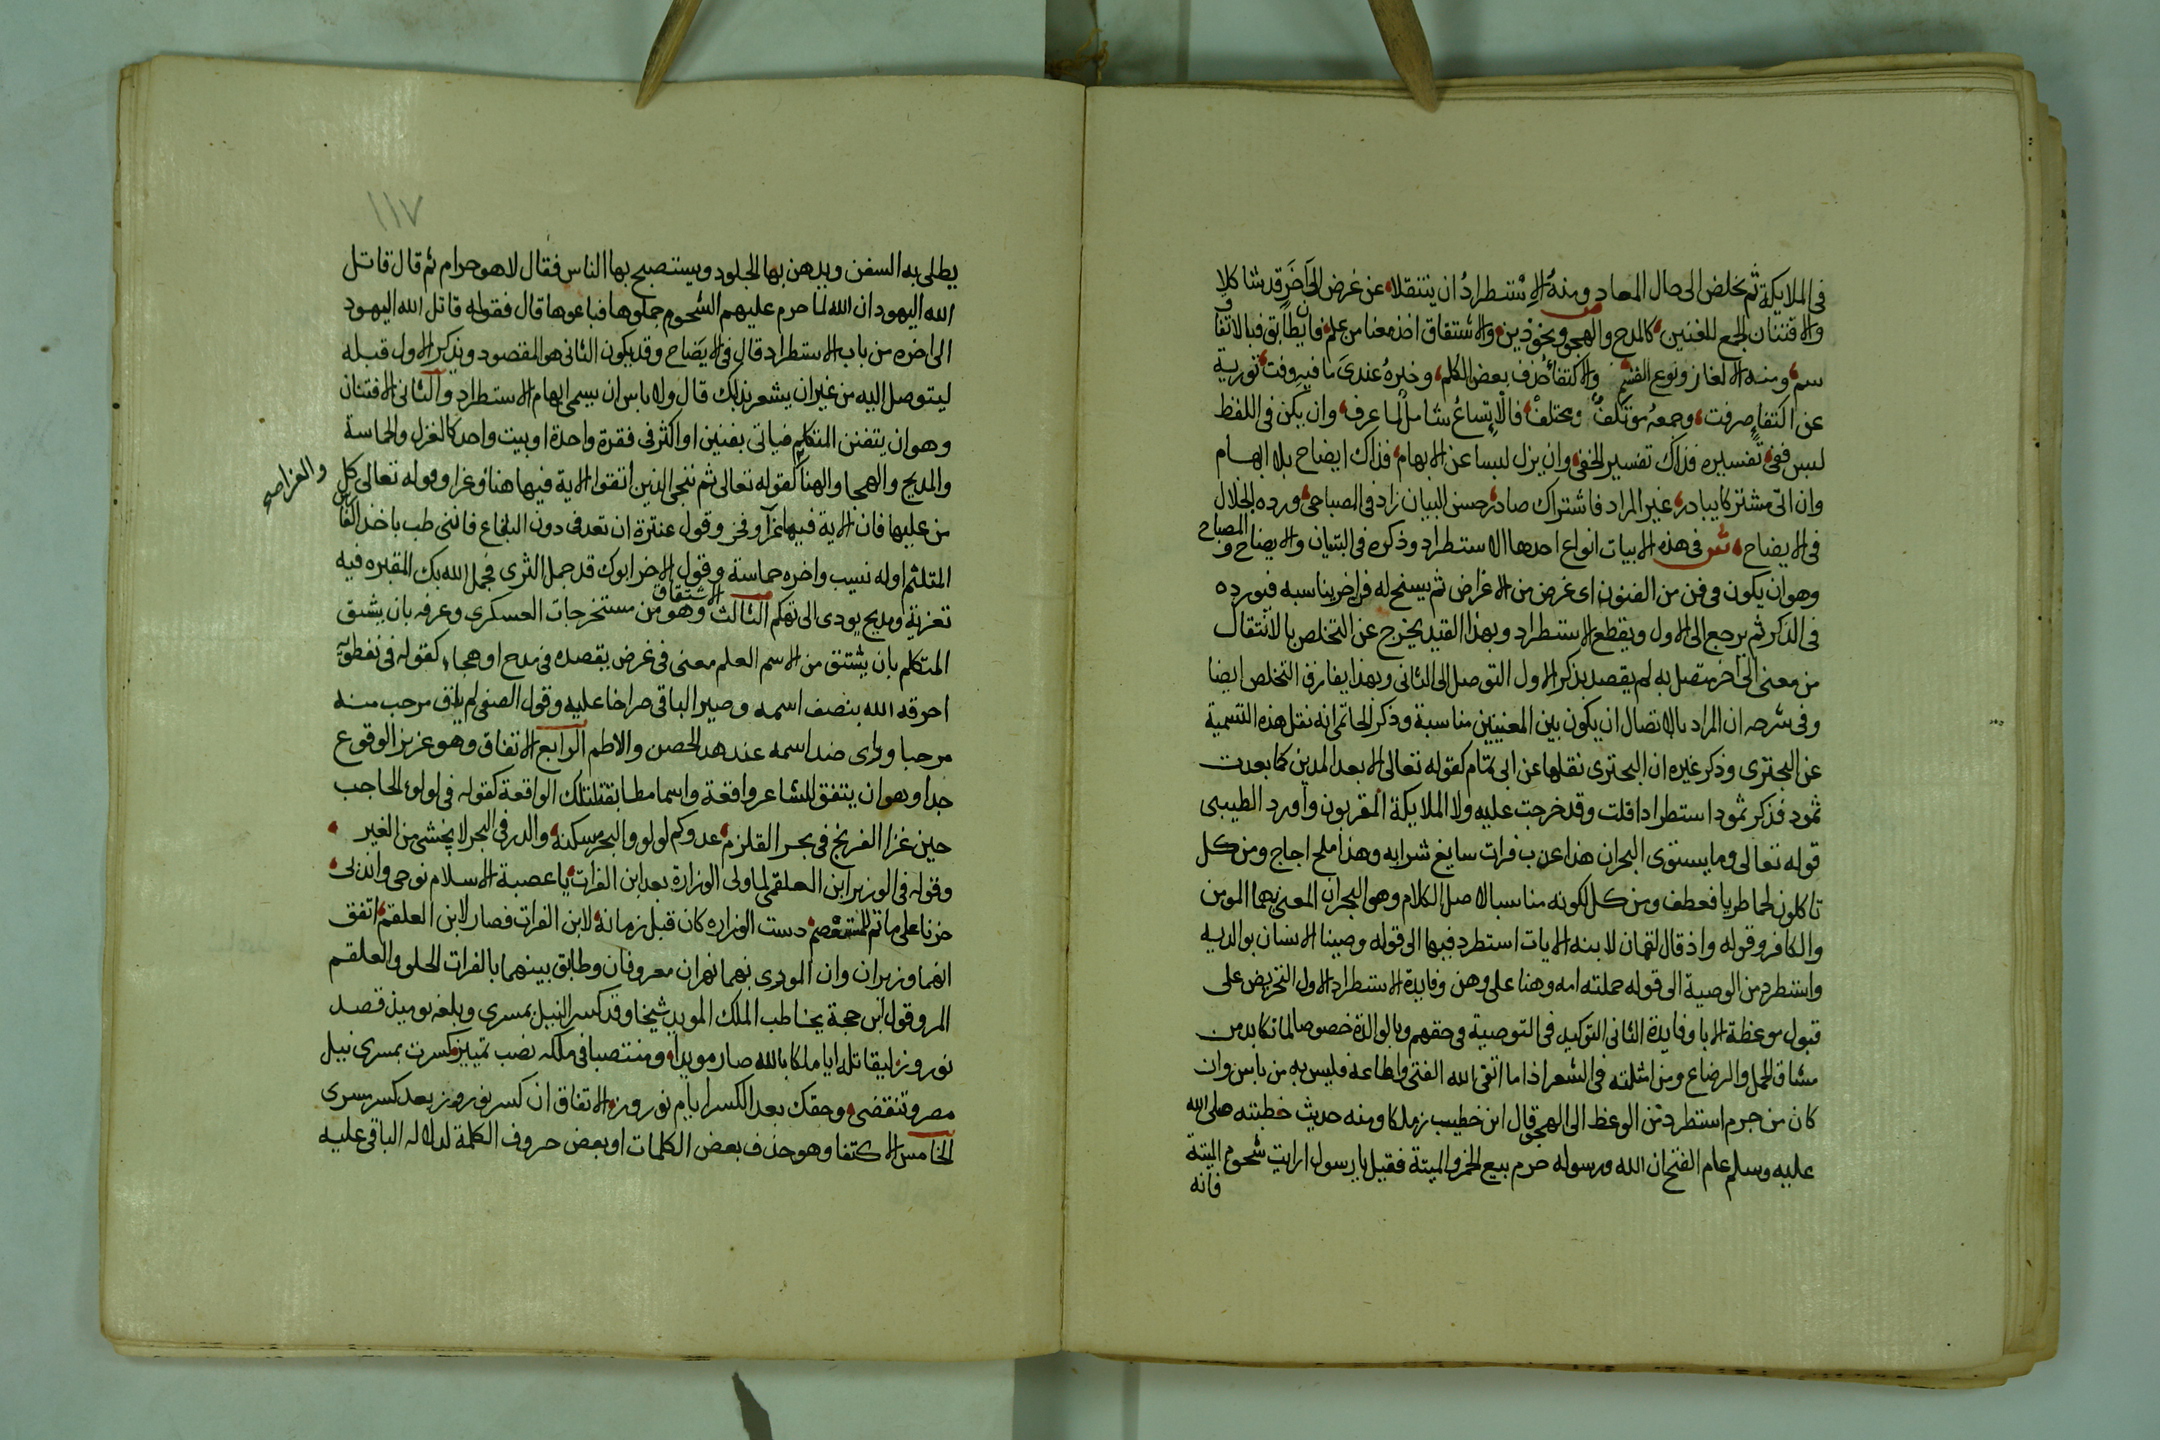 في الملايكة ثم تخلص الى حال المعاد ص ومنه الاستطراد ان ينتقلا عن غرض الى اخر قد شاكلا
والافتنان الجمع للفنين كالمدح والهجو ونحو ذين والاشتقاق اخذ معنا من علم فان يطابق فبالاتفاق
سم ومنه الالغاز ونوع القسم والاكتفا حذف بعض الكلم وخيره عندى ما فيه وفت تورية
عن اكتفاء صرفت وجمعه موتلف ومختلف فالاتساع شامل لما عرف وان يكن في اللفظ
لبس ففي تفسيره فذاك تفسير الخفي وان يزل لبسا عن الابهام فذاك ايضاح بلا ابهام
وان اتى مشتركا يبادر غير المراد فاشتراك صادر حسن البيان زاد في المصباح ورده الجلال
في الايضاح ش في هذه الابيات انواع احدها الاستطراد وذكره في التبيان والايضاح والمصباح
وهو ان يكون في فن من الفنون اى غرض من الاغراض ثم يسنح له فن اخر يناسبه فيورده
في الذكر ثم يرجع الى الاول ويقطع الاستطراد وبهذا القيد يخرج عن التخلص بالانتقال
من معنى الى اخر متصل به لم يقصد بذكر الاول التوصل الى الثاني وبهذا يفارق التخلص ايضا
وفي شرحه ان المراد بالاتصال ان يكون بين المعنيين مناسبة وذكر الحاتمي انه نقل هذه التسمية
عن البحترى وذكر غيره ان البحترى نقلها عن ابي تمام كقوله تعالى الا بعدا لمدين كما بعدت
ثمود فذكر ثمود استطرادا قلت وقد خرجت عليه ولا الملايكة المقربون واورد الطيبي
قوله تعالى وما يستوى البحران هذا عذب فرات سايغ شرابه وهذا ملح اجاج ومن كل
تاكلون لحما طريا فعطف ومن كل لكونه مناسبا لاصل الكلام وهو البحران المعني بهما المومن
والكافر وقوله واذ قال لقمان لابنه الايات استطرد فيها الى قوله وصينا الانسان بوالديه
واستطرد من الوصية الى قوله حملته امه وهنا على وهن وفايدة الاستطراد الاول التحريض على
قبول موعظة الابا وفايدة الثاني التوكيد في التوصية في حقهم وبالوالدة خصوصا لما تكابد من
مشاق الحمل والرضاع ومن امثلته في الشعر اذا ما اتقى الله الفتى واطاعه فليس به من باس وان
كان من جرم استطرد من الوعظ الى الهجو قال ابن خطيب زملكا ومنه حديث خطبته صلى الله
عليه وسلم عام الفتح ان الله ورسوله حرم بيع الخمر والميتة فقيل يا رسول ارايت شحوم الميتة
فانه
١١٧
يطلى به السفن ويدهن بها الجلود ويستصبح بها الناس فقال لا هو حرام ثم قال قاتل
الله اليهود ان الله لما حرم عليهم الشحوم جملوها فباعوها قال فقوله قاتل الله اليهود
الى اخره من باب الاستطراد قال في الايضاح وقد يكون الثاني هو المقصود ويذكر الاول قبله
ليتوصل اليه من غير ان يشعر بذلك قال ولا باس ان يسمى ايهام الاستطراد والثاني الافتنان
وهو ان يتفنن المتكلم فياتي بفنين او اكثر في فقرة واحدة او بيت واحد كالغزل والحماسة
والمديح والهجا والهنا كقوله تعالى ثم ننجي الذين اتقوا الاية فيها هنا وعزا وقوله تعالى كل
والعزا صح
من عليها فان الاية فيها عزا وفخر وقول عنترة ان تغدفي دون القناع فانني طب باخذ الفارس
المتلثم اوله نسيب واخره حماسة وقول الاخر ابوك قد جمل الثرى فجمل الله بك المقبره فيه
تعزية ومديح يودى الى تهكم الثالث الاشتقاق وهو من مستخرجات العسكرى وعرفه بان يشتق
المتكلم بان يشتق من الاسم العلم معنى في غرض يقصده في مدح او هجاء كقوله في نفطويه
احرقه الله بنصف اسمه وصير الباقي صراخا عليه وقول الصفي لم يلق مرحب منه
مرحبا وراى ضد اسمه عند هد الحصن والاطم الرابع الاتفاق وهو عزيز الوقوع
جدا وهو ان يتفق للشاعر واقعة واسما مطابقة لتلك الواقعة كقوله في لولو الحاجب
حين غزا الفرنج في بحر القلزم عدوكم لولو والبحر مسكنه والدر في البحر لا يخشى من الغير
وقوله في الوزير ابن العلقمي لما ولى الوزارة بعد ابن الفرات يا عصبة الاسلام نوحي واندبي
حزنا على ما تم للمستعصم دست الوزاره كان قبل زمانه لابن الفرات فصار لابن العلقم اتفق
انهما وزيران وان المورى بهما نهران معروفان وطابق بينهما بالفرات الحلو والعلقم
المر وقول ابن حجة يخاطب الملك المويد شيخا وقد كسر النيل بمسرى وبلغه يوميذ قصد
نوروز ليقاتله ايا ملكا بالله صار مويدا ومنتصبا في ملكه نصب تمييز كسرت بمسرى نيل
مصر وتنقضى وحقك بعد الكسر ايام نوروز الاتفاق ان كسر نوروز بعد كسر مسرى
الخامس الاكتفا وهو حذف بعض الكلمات او بعض حروف الكلمة لدلالة الباقي عليه